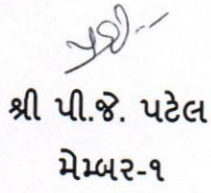 શ્રી પી.જે. પટેલ
મેમ્બર-૧